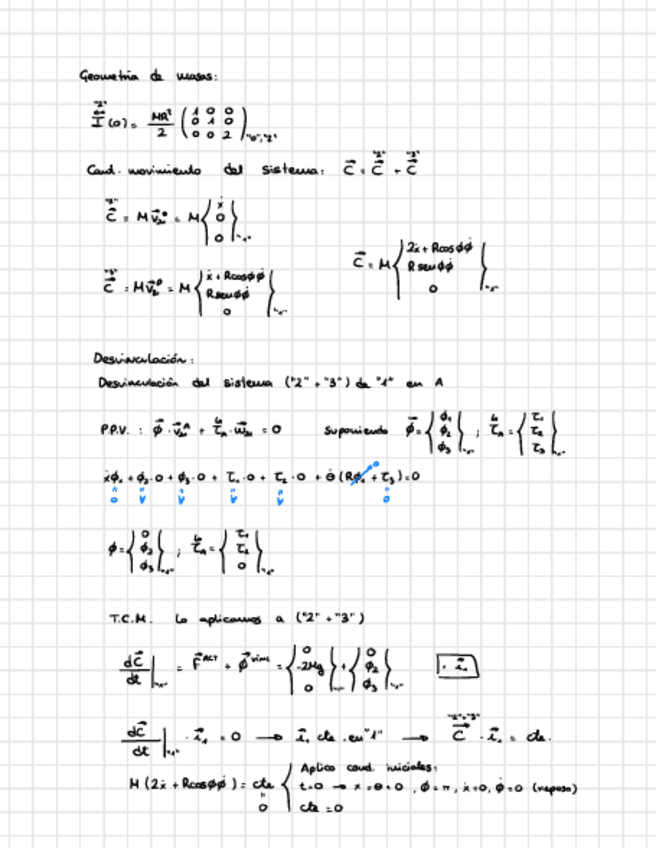 Geometría de masas:
"2" I(o) = MR²/2 (1 0 0 / 0 1 0 / 0 0 2) "0","2"
Cant. movimiento del sistema: C = C "2" + C "3"
C = M v = M { ẋ / 0 / 0 }
C = M v = M { ẋ + Rcosφφ̇ / Rsenφφ̇ / 0 }
C = M { 2ẋ + Rcosφφ̇ / Rsenφφ̇ / 0 }
Desvinculación:
Desvinculación del sistema ("2" + "3") de "1" en A
P.P.V. : φ · v + τ · ω = 0 Suponiendo φ = { φ₁ / φ₂ / φ₃ } ; τ = { τ₁ / τ₂ / τ₃ }
ẋφ₁ + φ₂·0 + φ₃·0 + τ₁·0 + τ₂·0 + θ̇(Rφ₁ + τ₃) = 0
0 ∀ ∀ ∀ ∀ 0
φ = { 0 / φ₂ / φ₃ } ; τ = { τ₁ / τ₂ / 0 }
T.C.M. Lo aplicamos a ("2" + "3")
dC/dt |"1" = F ACT + φ VINC = { 0 / -2Mg / 0 } + { 0 / φ₂ / φ₃ } · i₁
dC/dt |"1" · i₁ = 0 → i₁ cte. en "1" → C "2"+"3" · i₁ = cte.
M (2ẋ + Rcosφφ̇) = cte { Aplico cond. iniciales:
t=0 → x=θ=0 , φ=π, ẋ=0, φ̇=0 (reposo)
0 cte = 0